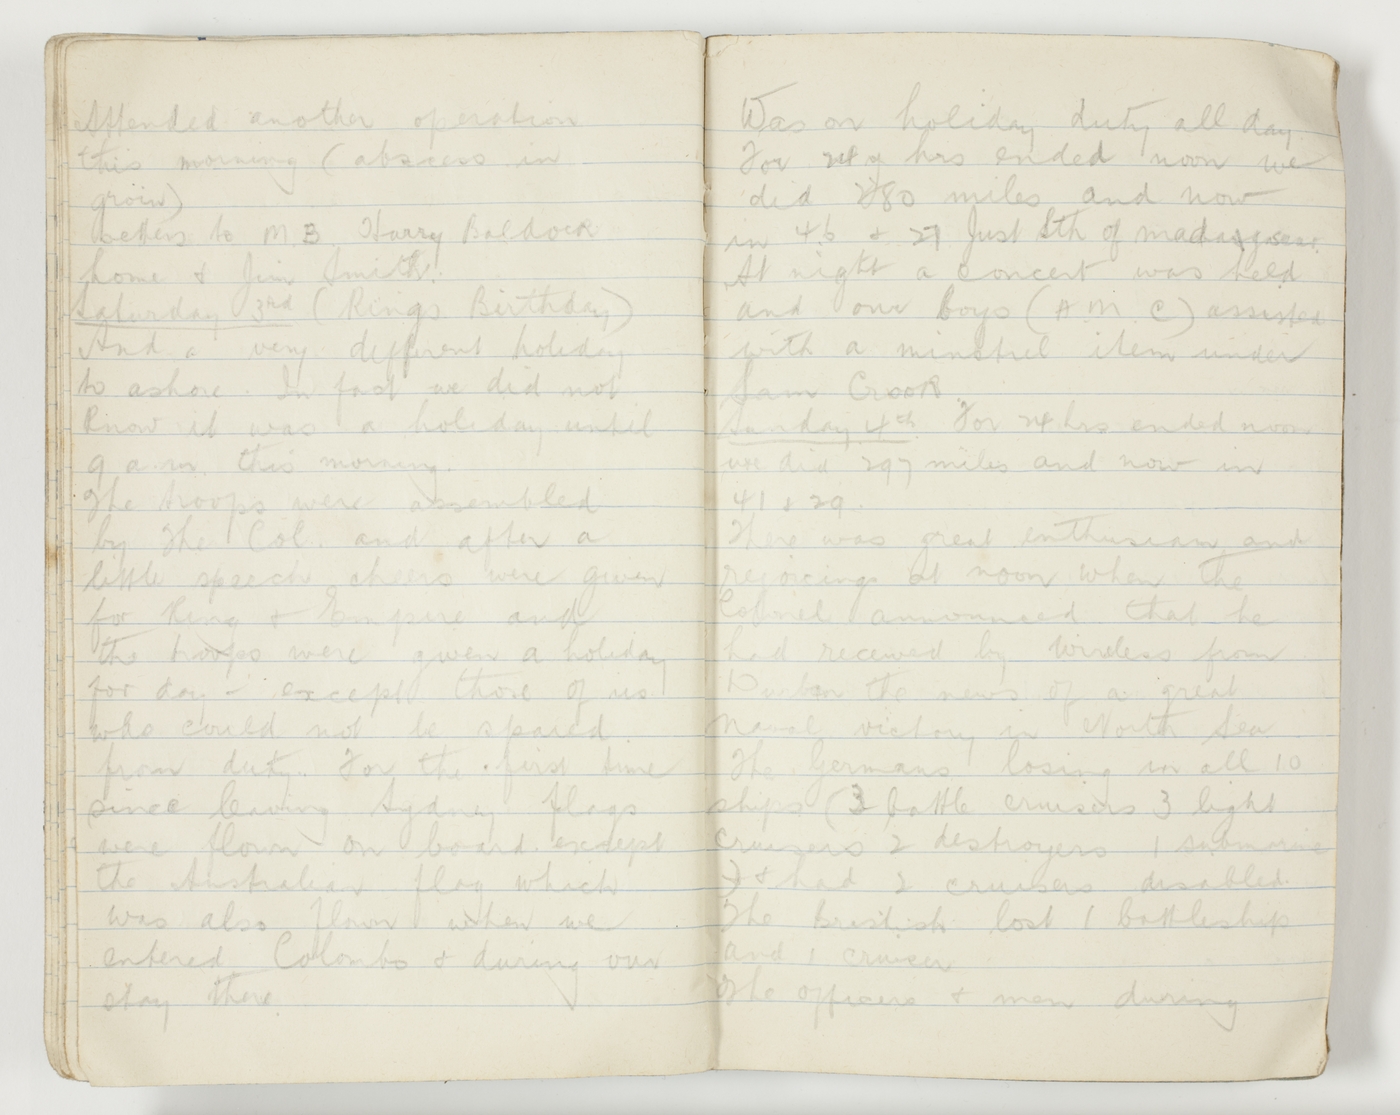 Attended another operation
this morning (abscess in
groin)
Letters to M B Harry Baldock
home & Jim Smith.
Saturday 3rd (Kings Birthday)
And a very different holiday
to ashore. In fact we did not
know it was a holiday until
9 a.m. this morning.
The troops were assembled
by the Col. and after a
little speech cheers were given
for King & Empire and
the troops were given a holiday
for day - except those of us
who could not be spared
from duty. For the first time
since leaving Sydney flags
were flown on board except
the Australian flag which
was also flown when we
entered Colombo & during our
stay there.
Was on holiday duty all day.
For 24 hrs ended noon we
did 280 miles and now
in 46 & 27 Just Sth of Madagascar.
At night a concert was held
and our boys (A M C) assisted
with a minstrel item under
Sam Crook.
Sunday 4th For 24 hrs ended noon
we did 297 miles and now in
41 & 29.
There was great enthusiasm and
rejoicings at noon when the
Colonel announced that he
had received by wireless from
Durban the news of a great
Naval victory in North Sea
The Germans losing in all 10
ships (3 battle cruisers 3 light
cruisers 2 destroyers 1 submarine
) & had 2 cruisers disabled.
The British lost 1 battleship
and 1 cruiser
The officers & men during